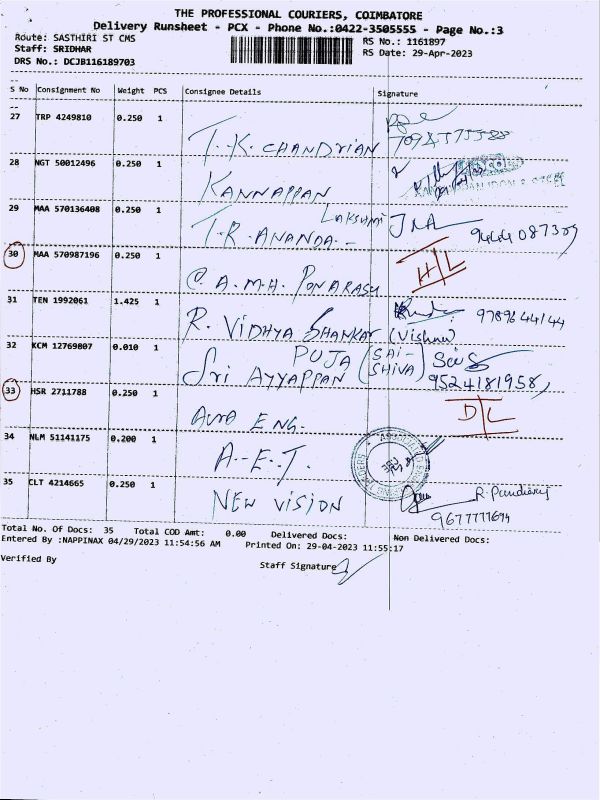 THE PROFESSIONAL COURIERS, COIMBATORE
Delivery Runsheet - PCX - Phone No.:0422-3505555 - Page No.:3
Route: SASTHIRI ST CMS
RS No.: 1161897
Staff: SRIDHAR
RS Date: 29-Apr-2023
DRS No.: DCJB116189703
S No Consignment No Weight PCS Consignee Details Signature
27 TRP 4249810 0.250 1 T.K. CHANDRIAN
28 NGT 50012496 0.250 1 KANNAPPAN
29 MAA 570136408 0.250 1 T.R. ANANDA- LAKSHMI 9444087309
30 MAA 570987196 0.250 1 P.A.M.H. PONARASU H/L
31 TEN 1992061 1.425 1 R. VIDHYA SHANKAR (Vishnu) 9789644144
32 KCM 12769807 0.010 1 Sri AYYAPPAN PUJA (SAI-SHIVA) 9524181958
33 HSR 2711788 0.250 1 AURA ENG. D/L
34 NLM 51141175 0.200 1 A.E.T.
35 CLT 4214665 0.250 1 NEW VISION R. Pandiaraj
9677777694
Total No. Of Docs: 35 Total COD Amt: 0.00 Delivered Docs: Non Delivered Docs:
Entered By :NAPPINAX 04/29/2023 11:54:56 AM Printed On: 29-04-2023 11:55:17
Verified By
Staff Signature